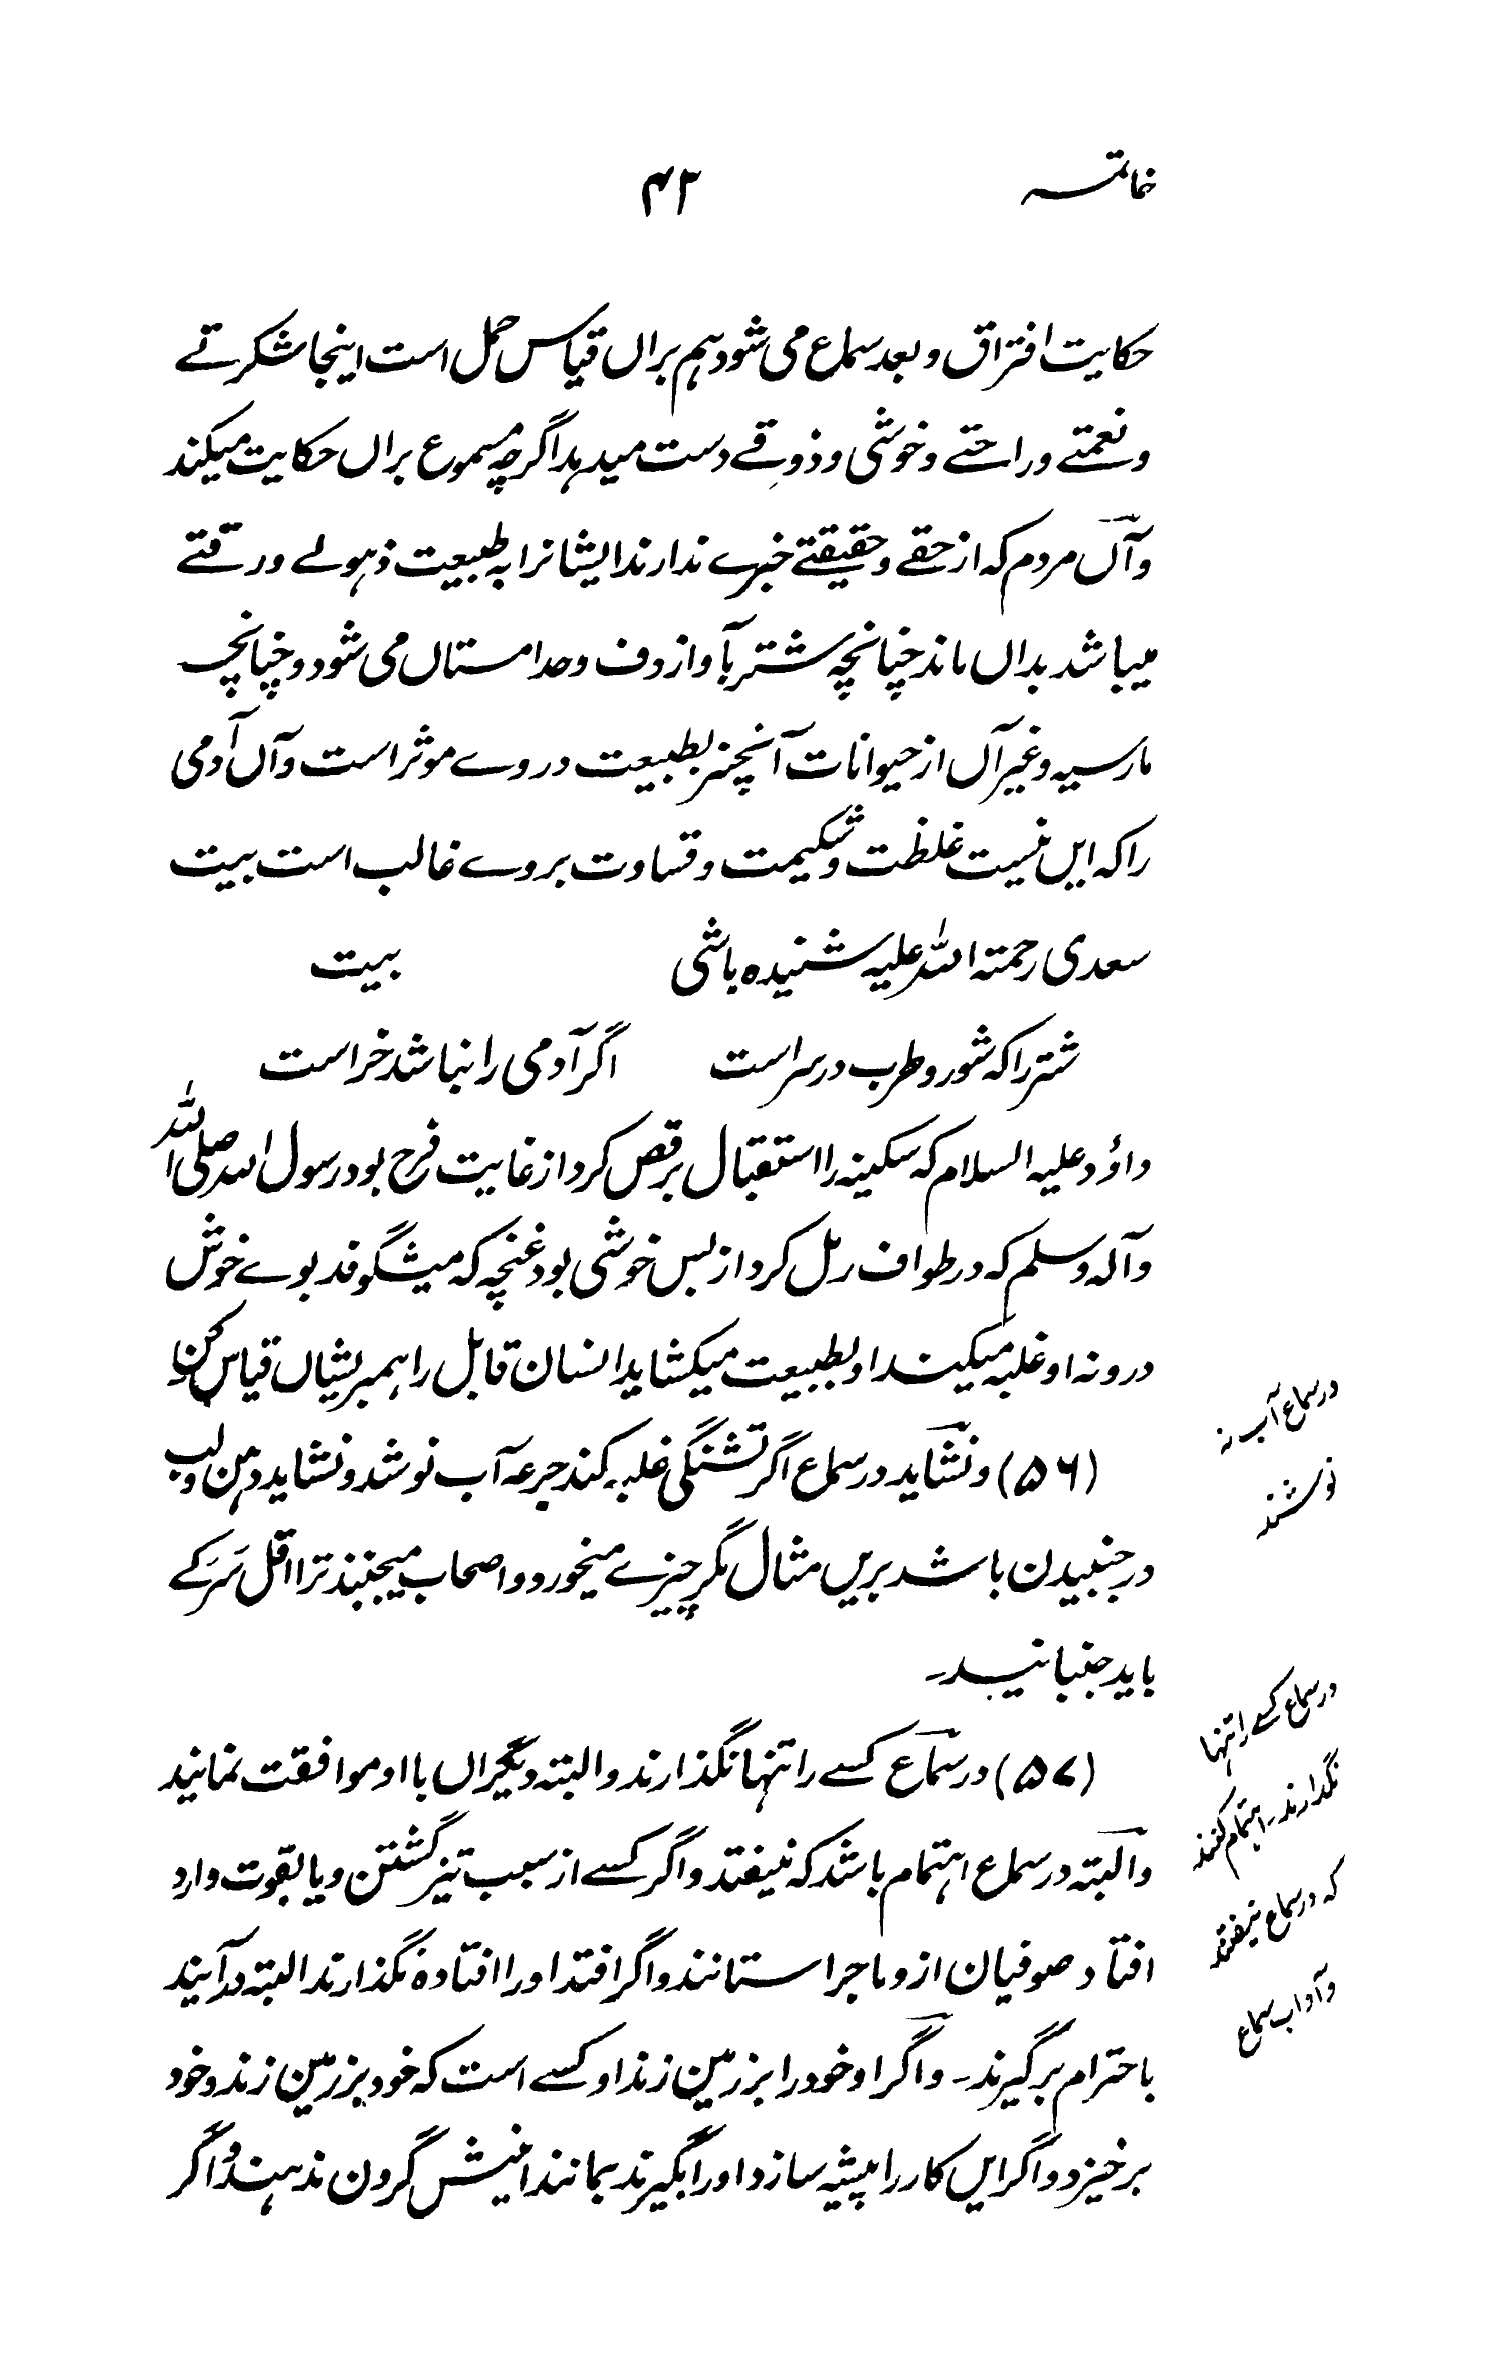 خاتمہ
۴۲
حکایت افتراق و بعد سماع می شود ہم براں قیاس حمل است اینجا شکرتے
و نعمتے و راحتے و خوشی و ذوقے دست میدہد اگرچہ مسموع براں حکایت میکند
و آں مردم کہ از حقے و حقیقتے خبرے ندارند ایشانرا بہ طبیعت ذہولے و رقتے
میباشد بداں ماند چنانچہ شتر بآواز دف و حدا مستاں می شود و چنانچہ
مار سیہ و غیر آں از حیوانات آنچنز بطبیعت در وے موثر است و آں آدمی
را کہ ایں نیست غلظت و شکیمت و قساوت بر وے غالب است بیت
سعدی رحمتہ اللہ علیہ شنیدہ باشی بیت
شتر را کہ شور و طرب در سراست اگر آدمی را نباشد خر است
داؤد علیہ السلام کہ سکینہ را استقبال برقص کرد از غایت فرح بود رسول اللہ صلی اللہ
و آلہ وسلم کہ در طواف رمل کرد از بس خوشی بود غنچہ کہ میشگوفد بوے خوش
درونہ او غلبہ میکند او بطبیعت میکشاید انسان قابل را ہم بریشاں قیاس کن
(۵۶) و نشاید در سماع اگر تشنگی غلبہ کند جرعہ آب نوشد و نشاید دہن و لب
در جنبیدن باشد بریں مثال مگر چیزے میخورد و اصحاب میجنبند ترا اقل سَرَکے
باید جنبانید۔
(۵۷) در سماع کسے را تنہا نگذارند و البتہ دیگراں با او موافقت نمایند
و البتہ در سماع اہتمام باشد کہ نیفتد و اگر کسے از سبب تیز گشتن و یا بقوت وارد
افتاد صوفیان ازو ماجرا ستانند و اگر افتد او را افتادہ نگذارند البتہ درآیند
باحترام برگیرند۔ و اگر او خود را بر زمین زند او کسے است کہ خود بر زمین زند و خود
برخیزد و اگر ایں کار را پیشہ سازد او را بگیرند بمانند افیش گردن ندہند و اگر
در سماع آب نہ
نوشند
در سماع کسے را تنہا
نگذارند۔ اہتمام کنند
کہ در سماع نیفتند
و آداب سماع